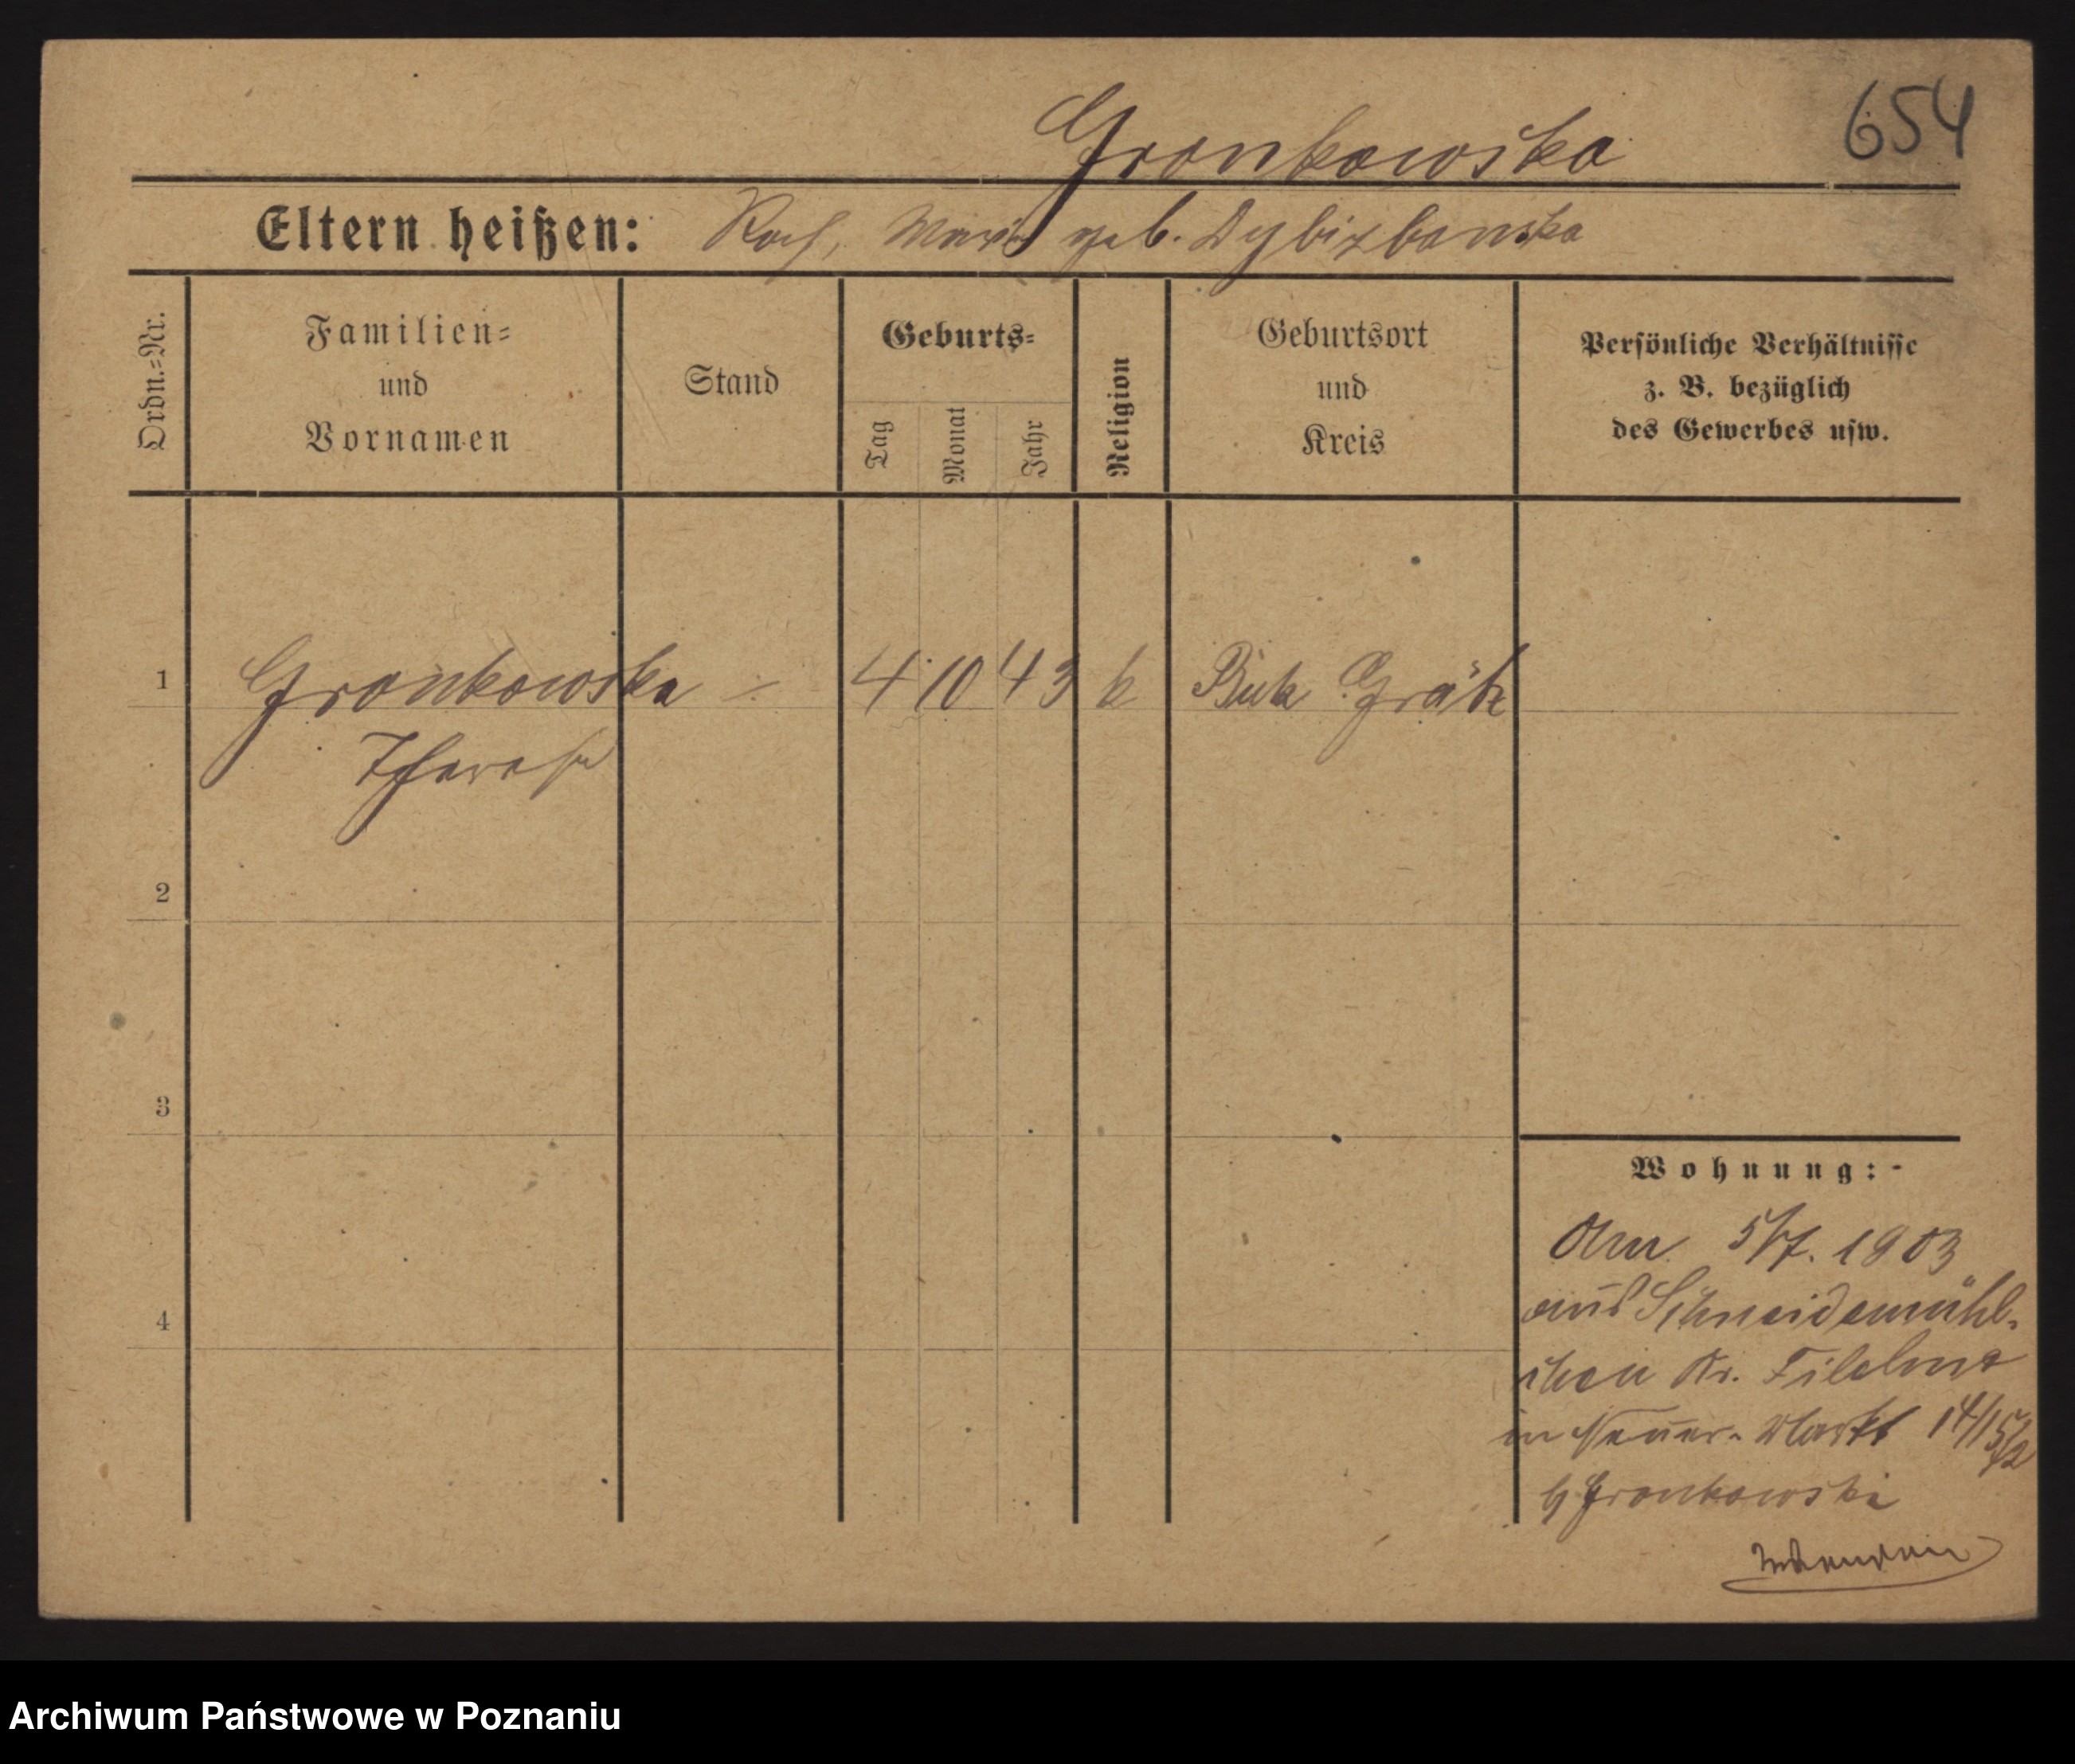 654
Gronkowska
Eltern heißen: Roch, Maria geb. Dybizbanska
Ordn.=Nr.
Familien=
und
Vornamen
Stand
Geburts=
Tag
Monat
Jahr
Religion
Geburtsort
und
Kreis
Persönliche Verhältnisse
z. B. bezüglich
des Gewerbes usw.
1 Gronkowska - 4 10 43 k Buk Grätz
Therese
2
3
4
Wohnung:
Am 5/7. 1903
aus Schneidemühl-
chen Kr. Filehne
in Neuer-Markt 14/15/2
b/ Gronkowski
Archiwum Państwowe w Poznaniu